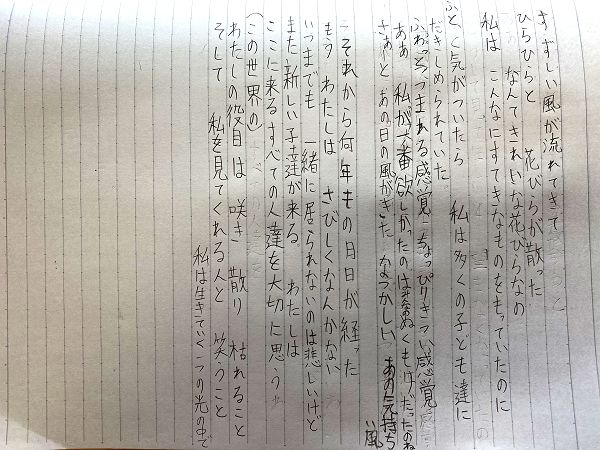 すずしい風が流れてきて
ひらひらと 花びらが散った
なんてきれいな花びらなの
私は こんなにすてきなものをもっていたのに
ふと 気がついたら 私は多くの子ども達に
だきしめられていた
ふわっとつつまれる感覚 ちょっぴりきつい感覚
ああ 私が一番欲しかったのは ぬくもりだったのね
さぁっと あの日の風がきた なつかしい あの気持ち
風
それから何年もの日日が経った
もう わたしは さびしくなんかない
いつまでも 一緒に居られないのは悲しいけど
また 新しい子達が来る わたしは
ここに来るすべての人達を大切に思う
(この世界の)
わたしの役目は 咲き 散り 枯れること
そして 私を見てくれる人と 笑うこと
私は生きていく 一つの光の中で